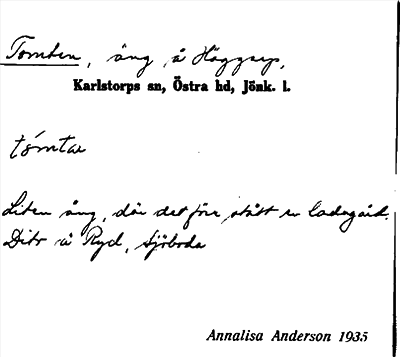 Tomten, äng å Häggsep,
Karlstorps sn, Östra hd, Jönk. l.
tómtæ
Liten äng, där det förr stått en ladugård.
Dito å Ryd, Sjöboda
Annalisa Anderson 1935